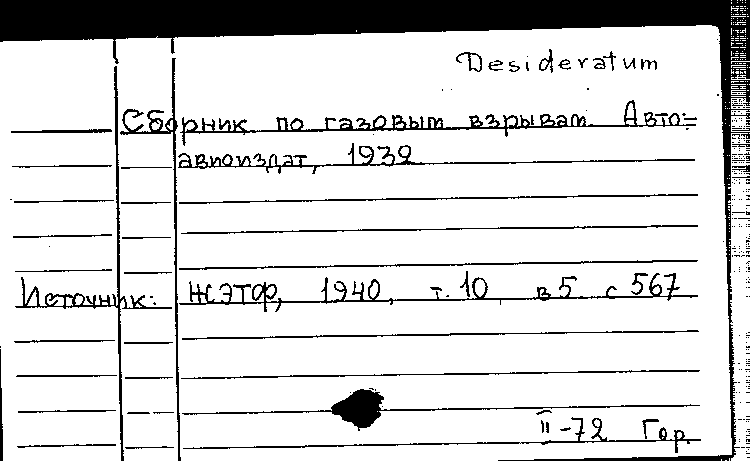 Desideratum
Сборник по газовым взрывам. Авто=
авиоиздат, 1932
Источник: ЖЭТФ, 1940, т. 10 в 5 с 567
II-72 Гор.